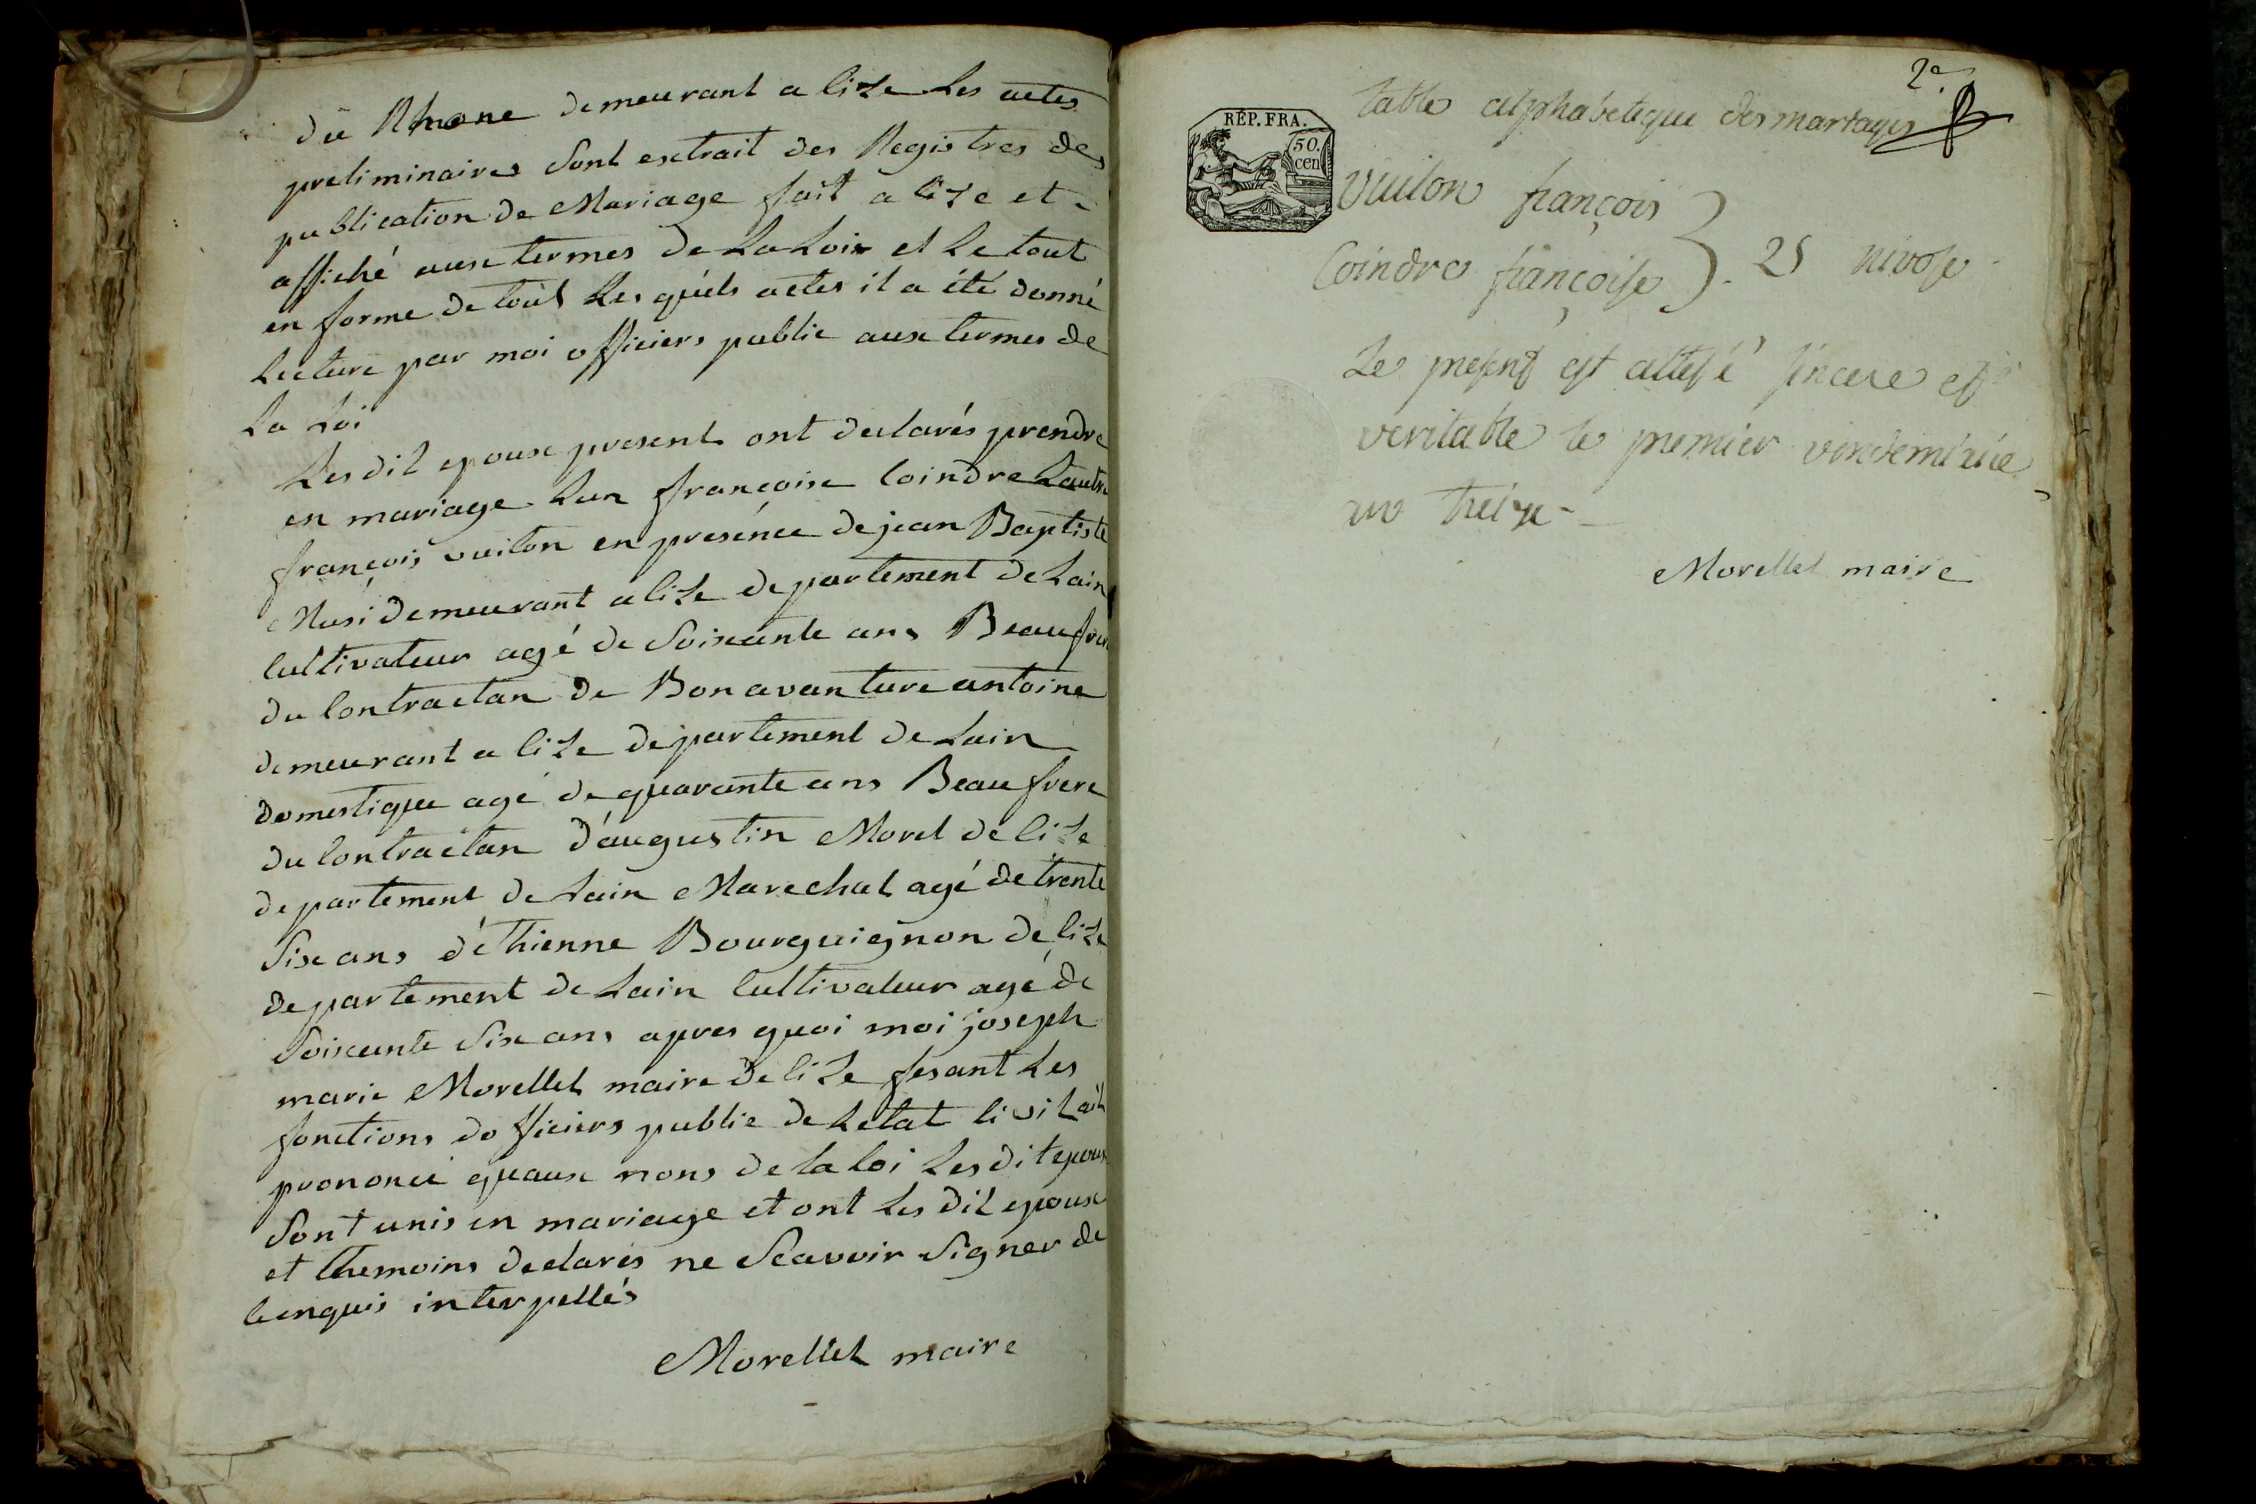 du Rhone demeurant a lize Les actes
preliminaires Sont extrait des Registres des
publication de Mariage fait a lize et
affiché aux termes de La Loix et Le tout
en forme de tout Les quels actes il a été donné
Lecture par moi officiers public aux termes de
La Loi
Les dit epoux present ont declarés prendre
en mariage Lun françoise Coindre Lautre
françois vuiton en presénce de jean Baptiste
Musi demeurant a lize departement de Lain
Cultivateur agé de Soixante ans Beau frer
du Contractan de Bonavanture antoine
demeurant a lize departement de Lain
domestique agé de quarante ans Beau frere
du Contractan d'augustin Morel de lize
departement de Lain Marechal agé de trente
Six ans d'éthienne Bourguignon de lize
departement de Lain Cultivateur agé de
Soixante Six ans apres quoi moi joseph
marie Morellet maire de lize fesant Les
fonctions dofficiers public de Letat Civil ait
prononcé quaux noms de la loi Les dit epoux
Sont unis en mariage et ont Les dit epoux
et themoins declarés ne Scavoir Signer de
Cenquis interpellés
Morellet maire
2e
table alphabetique des mariages
RÉP. FRA.
50.
cen
Vuiton françois
Coindre françoise } 25 nivose
Le present est attesté sincere et
veritable le premier vendemiaire
an treize
Morellet maire